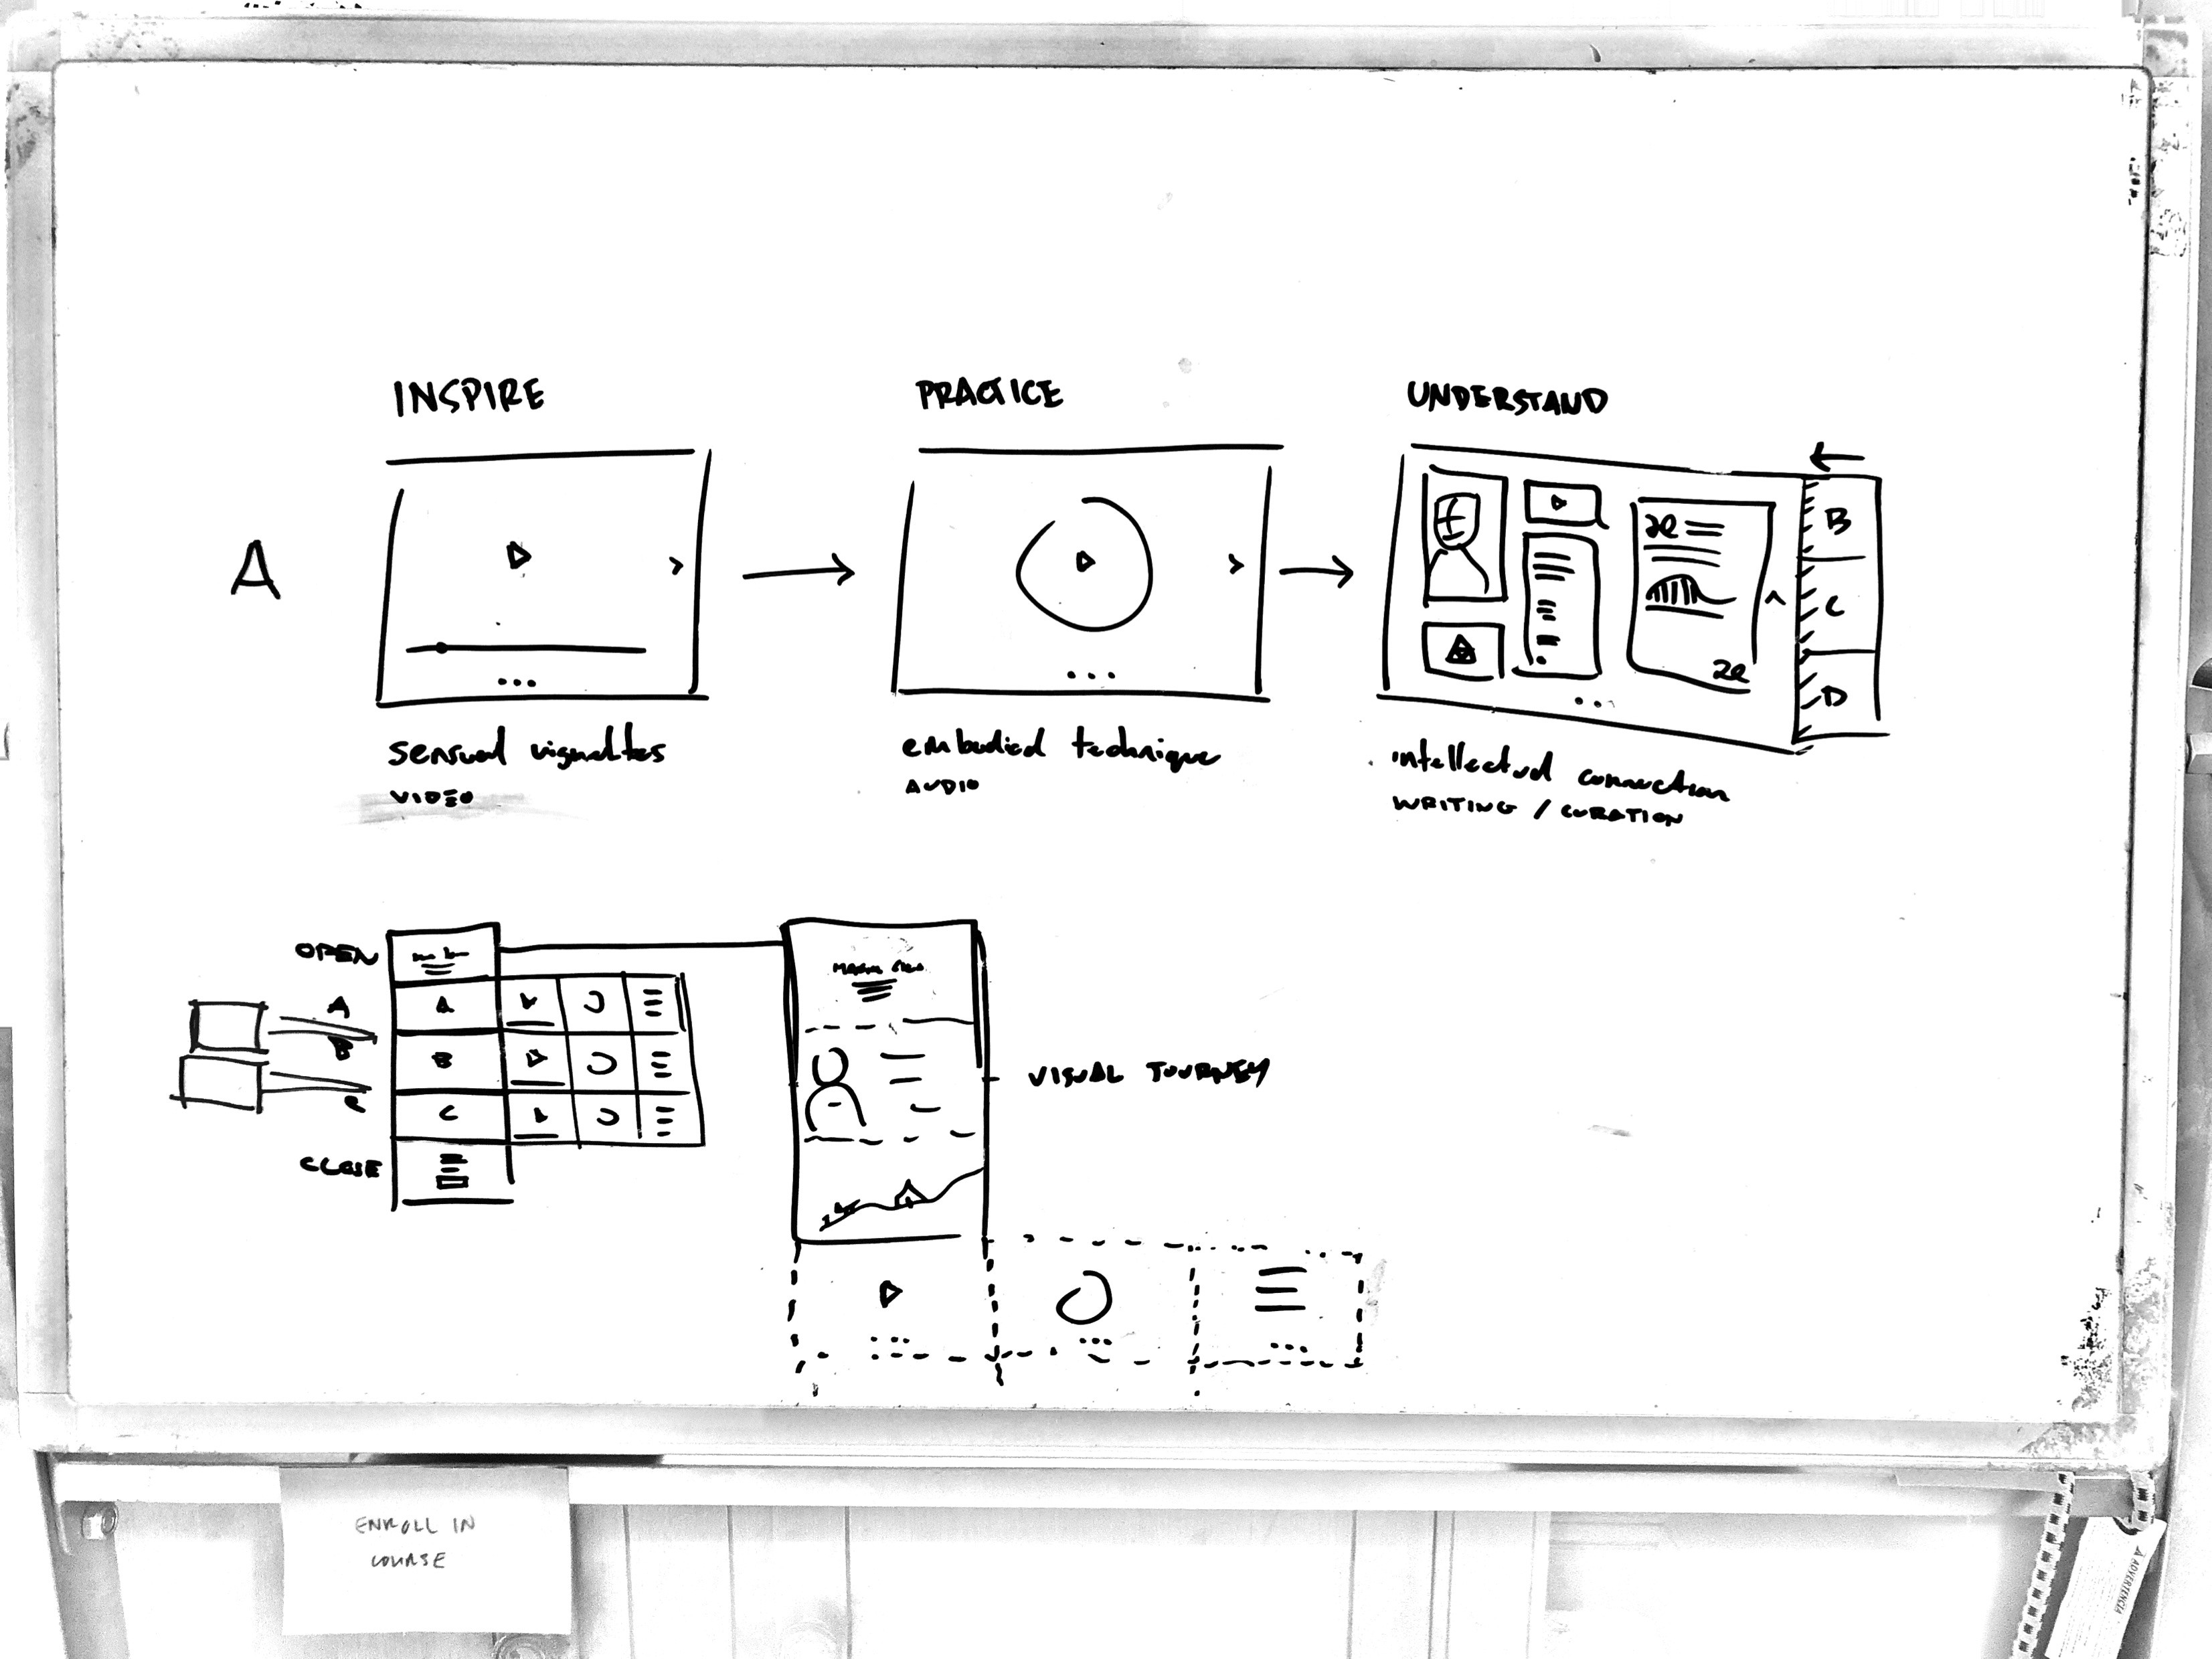 INSPIRE
PRACTICE
UNDERSTAND
A
B
C
D
sensual vignettes
VIDEO
embodied technique
AUDIO
intellectual connection
WRITING / CURATION
OPEN
A
B
C
A
B
C
CLOSE
VISUAL JOURNEY
ENROLL IN
COURSE
ADVERTENCIA